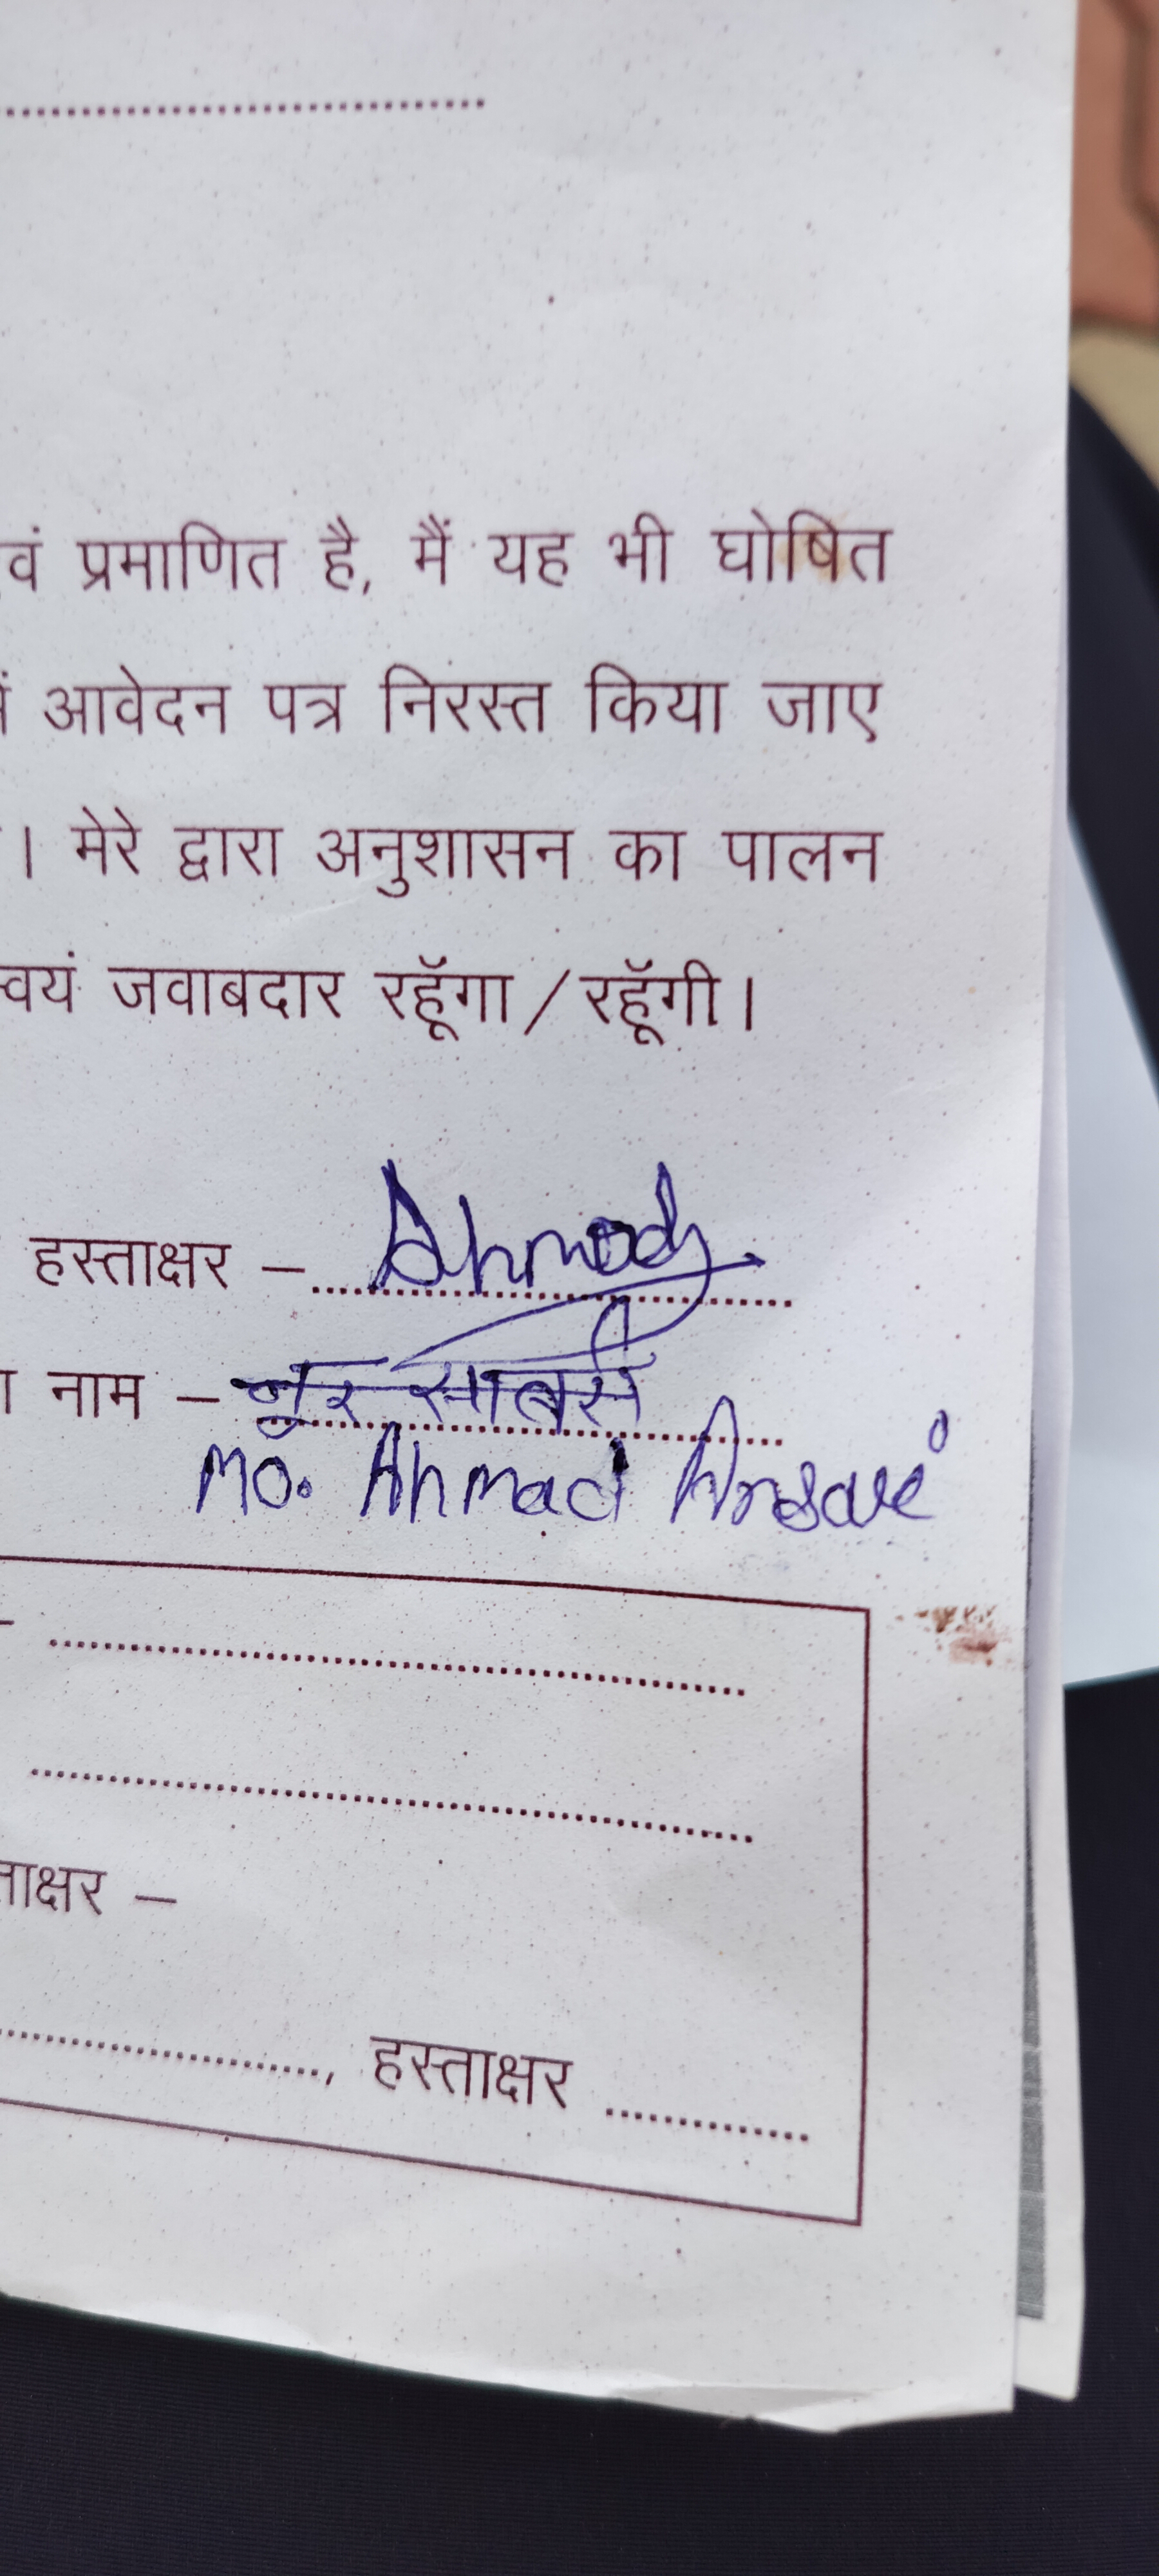 वं प्रमाणित है, मैं यह भी घोषित
आवेदन पत्र निरस्त किया जाए
। मेरे द्वारा अनुशासन का पालन
स्वयं जवाबदार रहूॅगा / रहूॅगी।
हस्ताक्षर – Ahmad
नाम – नूर
Mo. Ahmad Ansari
ताक्षर –
, हस्ताक्षर